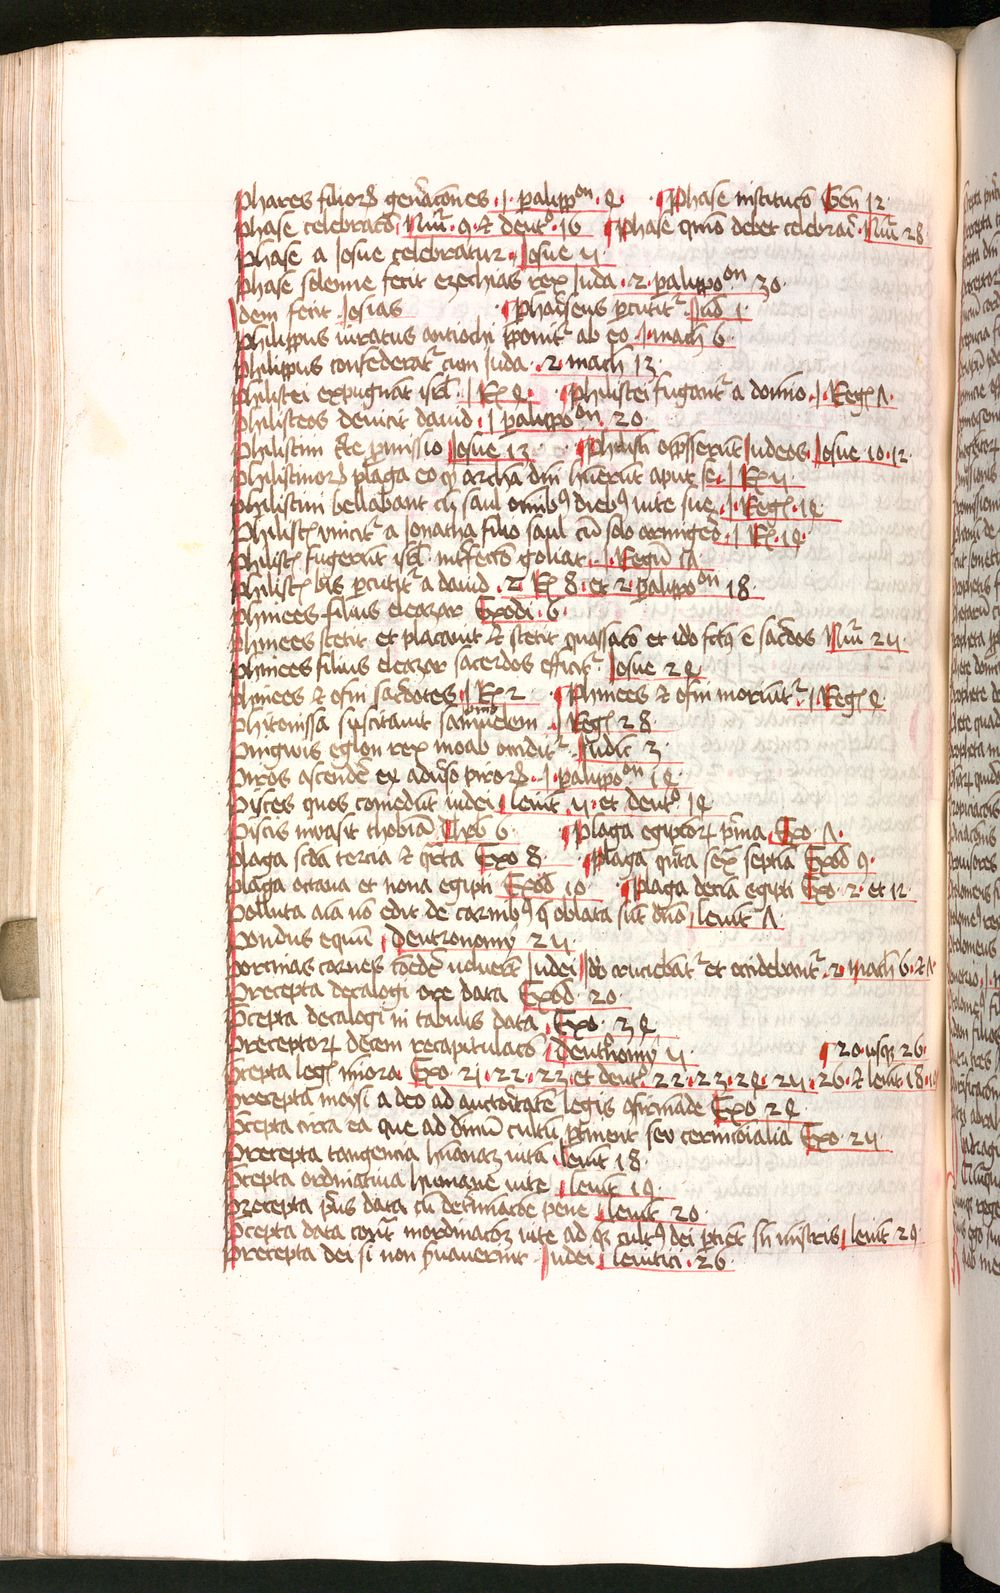 Phares filiorꝫ gen̄acōnes .1. palippoⁿ. 4. Phase institucō Gen̄ 12
phase celebracō Nūi. 9. et deutᵒ. 16 Phase qm̄o debet celebrari Nūi 28
Phase a Josue celebratur. Josue 5.
Phase solenne fecit ezechias rex Juda. 2. palippoᵒⁿ 30.
Idem fecit Josias Phariseus p̄cutitʳ Jud 1.
Philippus iuratus antiochi p̄ponitʳ ab eo 1. mach 6.
Philippus confederatʳ cum Juda. 2. mach 13
philistei expugnāt isr̄l. 1 Rꝫ 4. Philistei fugantʳ a domino. 1. Regꝫ 7.
philisteos deuicit dauid. 1 palippoᵒⁿ. 20.
Philistim t̄re p̄missio Josue 13. Philisti opp̄sserūt Judeos. Josue 10. 12.
Philistinorꝫ plaga eo ꝙ archā dn̄i hūerūt aput se. 1 Rꝫ 5
philistini bellabant cū saul omībꝰ diebꝰ vite sue. 1. Regꝫ. 14
Philistꝫ vincitʳ a Jonatha filio saul cū suo armigerō. 1 Rꝫ. 14.
Philistꝫ fugerūt isr̄l int̄fecto goliat. 1. Regū 17.
Philistꝫ bis p̄cutitʳ a dauid. 2 Rꝫ 8. et 2. palippoᵒⁿ 18.
Phinees filius eleazar Exodi. 6.
Phinees stetit et placauit et stetit quassacō et ido fctꝰ ē sac̄dos Nūi 25.
Phinees filius eleazar sacerdos efficitʳ. Josue 24
Phinees et ofni sac̄dotes. 1 Rꝫ 2 Phinees et ofni moriūtʳ. 1 Regꝫ 4
Phitonissa suscitauit samuelem. 1 Regꝫ 28.
Pinguis eglon rex moab occiditʳ. Judic 3.
Piros ascendē ex aduīso pirorꝫ. 1. palippoᵒⁿ 14.
Pisces quos comedūt iudei Leuit. 11. et deutᵒ 14
Piscis inuasit thobiā Thob 6. Plaga egiptiorꝫ p̄ma. Exo. 7.
plaga sc̄da tercia et q̄rta Exo 8. Plaga qn̄ta sexꝫ septīa Exod 9.
plaga octaua et nona egipti Exod. 10. Plaga decīa egipti Exo. 2. et 12
Polluta aīa nō edit de carnibꝰ q̄ oblata sūt dn̄o Leuit 7.
Pondus equū. deutronomȳ 25.
Porcinas carnes com̄ede noluerūt Judei Idō cruciebātʳ et occidebantʳ. 2 Mach 6. et 7
Precepta decalogi ore data Exod. 20.
P̄cepta decalogi in tabulis data. Exo. 34
Preceptorꝫ decem recapitulacō deutᵒnomȳ 5. 20 usqꝫ 26.
P̄cepta legꝫ minora Exo. 21. 22. 23. et deutᵒ. 22. 23. 24. 25. 26. et leuit 18.
Precepta moysi a deo ad auctoritatem legis
P̄cepta circa ea que ad diuinū cultū p̄tinent seu cerimoialia Exo. 25.
Precepta tangencia hūanaꝫ vitā Leuit 18.
P̄cepta ordinatiua humane vite Leuit 19
Precepta p̄us data cū det̄minacōe pene Leuit. 20.
P̄cepta data cont̄ inordinacōꝫ vite ad qꝫ cultꝰ dei p̄tinēt in ministris Leuit 29
Precepta dei si non s̄uauerint Judei Leuitici. 26.